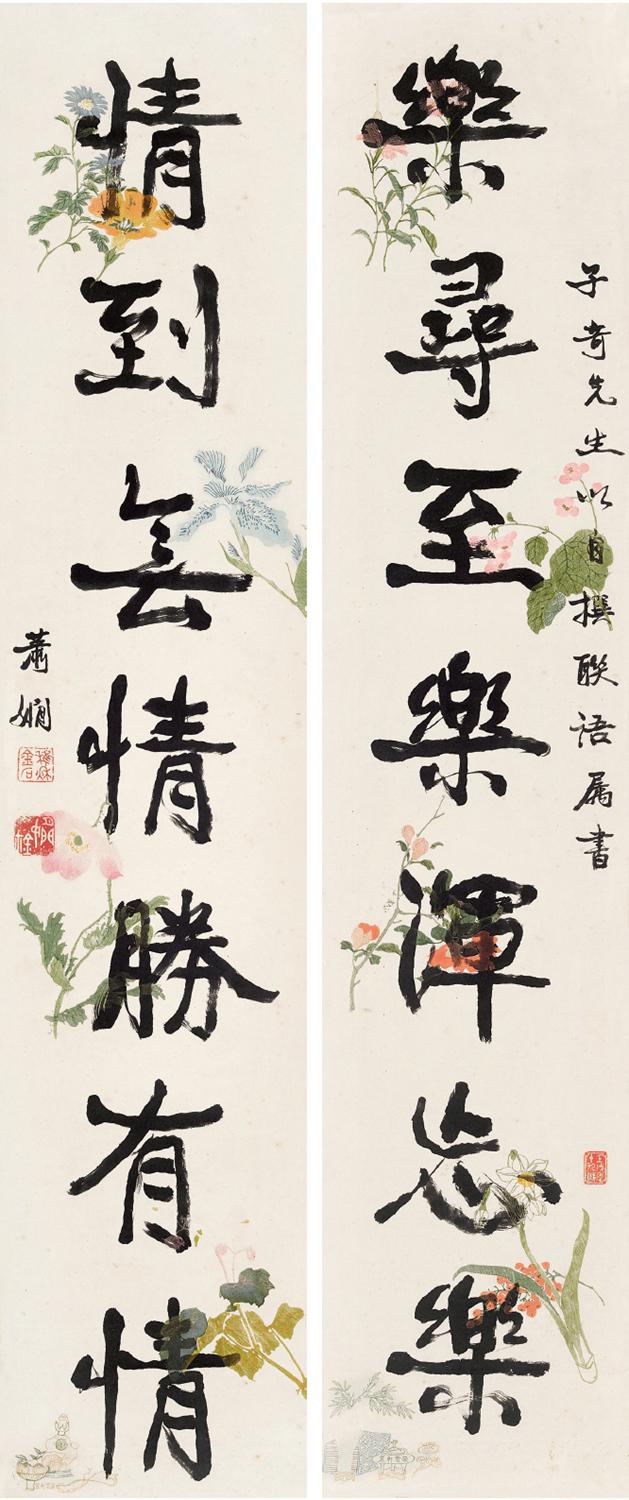 子奇先生以自撰联語属書
樂尋至樂渾忘樂
情到無情勝有情
蕭嫻